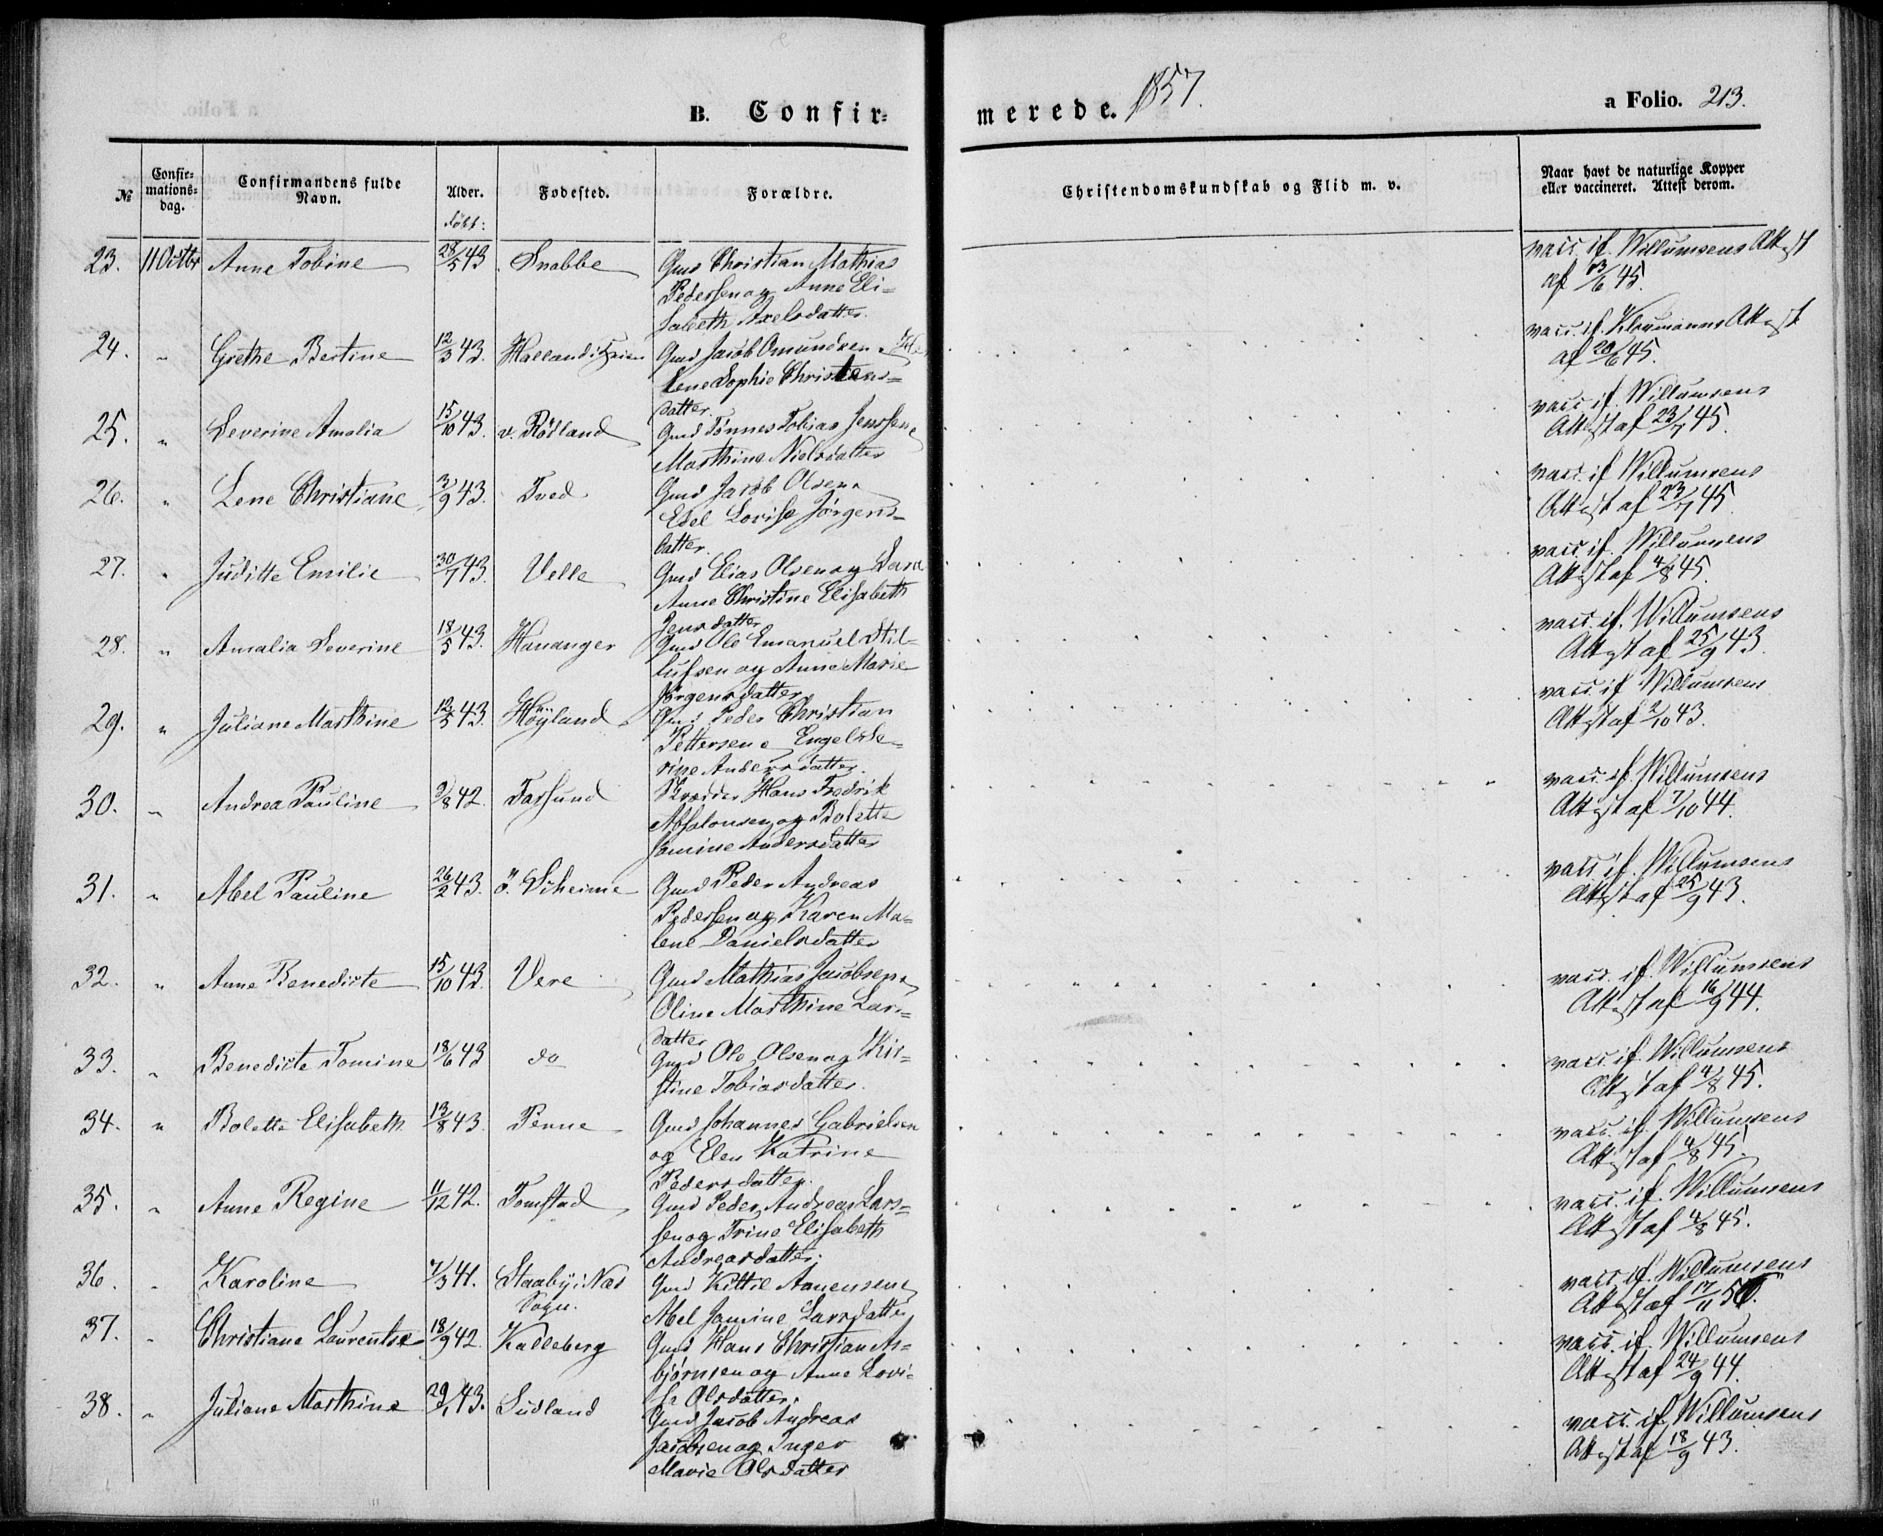 B. Confir-
merede. 1857.
a Folio. 213.
№
Confir-
mations-
dag.
Confirmandens fulde
Navn.
Alder.
født:
Fødested.
Forældre.
Christendomskundskab og Flid m. v.
Naar havt de naturlige Kopper
eller vaccineret. Attest derom.
23. 11 Octbr Anne Tobine 28/5 43. Snabbe Gmd Christian Mathias
Pedersen og Anne Eli-
sabeth Axelsdatter.
vacc. if. Willumsens Attest
af 13/6 45.
24. " Grethe Bertine 12/3 43. Halland i Gmd Jacob Omundsen
lene Sophie Christens-
datter.
vacc. if. Attest
af 20/6 45.
25. " Severine Amalia 15/10 43. v. Rødland Gmd Tønnes Tobias Jenssen
Marthine Nielsdatter
vacc. if. Willumsens
Attest af 23/7 45.
26. " Lene Christiane 3/9 43. Tved Gmd Jacob Olsen
Edel Lovise Jørgens-
datter.
vacc. if. Willumsens
Attest af 23/7 45.
27. " Juditte Emilie 30/7 43. Velle Gmd Elias Olsen og Sara
Anne Christine Elisabeth
Jensdatter
vacc. if. Willumsens
Attest af 4/8 45.
28. " Amalia Severine 18/5 43. Hananger Gmd Ole Emanuel Stil-
lufsen og Anne Marie
Jørgensdatter
vacc. if. Willumsens
Attest af 25/9 43.
29. " Juliane Marthine 12/5 43. Høyland Gmd Peder Christian
Pettersen Engel Se-
rine Andersdatter.
vacc. if Willumsens
Attest af 2/10 43.
30. " Andrea Pauline 2/8 42. Farsund Skræder Hans Fredrik
Absalonsen og Bolette
Jomine Andersdatter
vacc. if. Willumsens
Attest af 7/10 44.
31. " Abel Pauline 26/2 43. ö. Vöheime Gmd Peder Andreas
Pedersen og Karen Ma-
lene Danielsdatter
vacc. if. Willumsens
Attest af 25/9 43.
32. " Anne Benedicte 15/10 43. Vere Gmd Mathias Jacobsen
Oline Marthine Lars-
datter
vacc. if. Willumsens
Attest af 16/9 44.
33. " Benedicte Tomine 18/6 43 do Gmd Ole Olsen og Kir-
stine Tobiasdatter.
vacc. if. Willumsens
Attest af 4/8 45.
34. " Bolette Elisabeth 13/8 43. Penne Gmd Johannes Gabrielsen
og Elen Katrine
Pedersdatter.
vacc. if. Willumsens
Attest af 4/8 45.
35. " Anne Regine 11/12 42. Tomstad Gmd Peder Andreas Lars-
sen og Trine Elisabeth
Andreasdatter.
vacc. if. Willumsens
Attest af 4/8 45.
36. " Karoline 7/3 41. Staaby i Næs
Sogn. Gmd Kittil Aanensen
Abel Jomine Larsdatter
vacc. if. Willumsens
Attest af 17/11 50.
37. " Christiane Laurentse 18/9 42. Kalleberg Gmd Hans Christian As-
bjørnsen og Anne Lovi-
se Olsdatter.
vacc. if. Willumsens
Attest af 24/9 44.
38. " Juliane Marthine 29/1 43. Sudland Gmd Jacob Andreas
Jacobsen og Inger
Marie Olsdatter
vacc. if. Willumsens
Attest af 18/9 43.